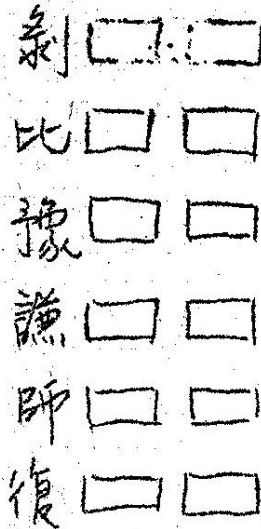 剝
比
豫
謙
師
復